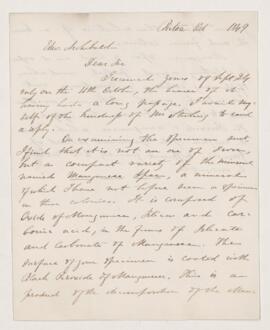 Pictou Oct 1849
Edw Archibald
Dear Sir
I received yours of Sept 24
only on the 11th October, the bearer of it
having had a long passage. I avail my-
self of the kindness of Mr Sterling to send
a reply.
On examining the specimen sent
I find that it is not an ore of Silver,
but a compact variety of the mineral
named Manganese Spar, a mineral
of which I have not before seen a specimen
in these colonies. It is composed of
Oxide of Manganese, Silica and Car-
bonic acid, in the form of Silicate
and Carbonate of Manganese. The
surface of your specimen is coated with
Black Peroxide of Manganese, this is a
product of the decomposition of the Man-